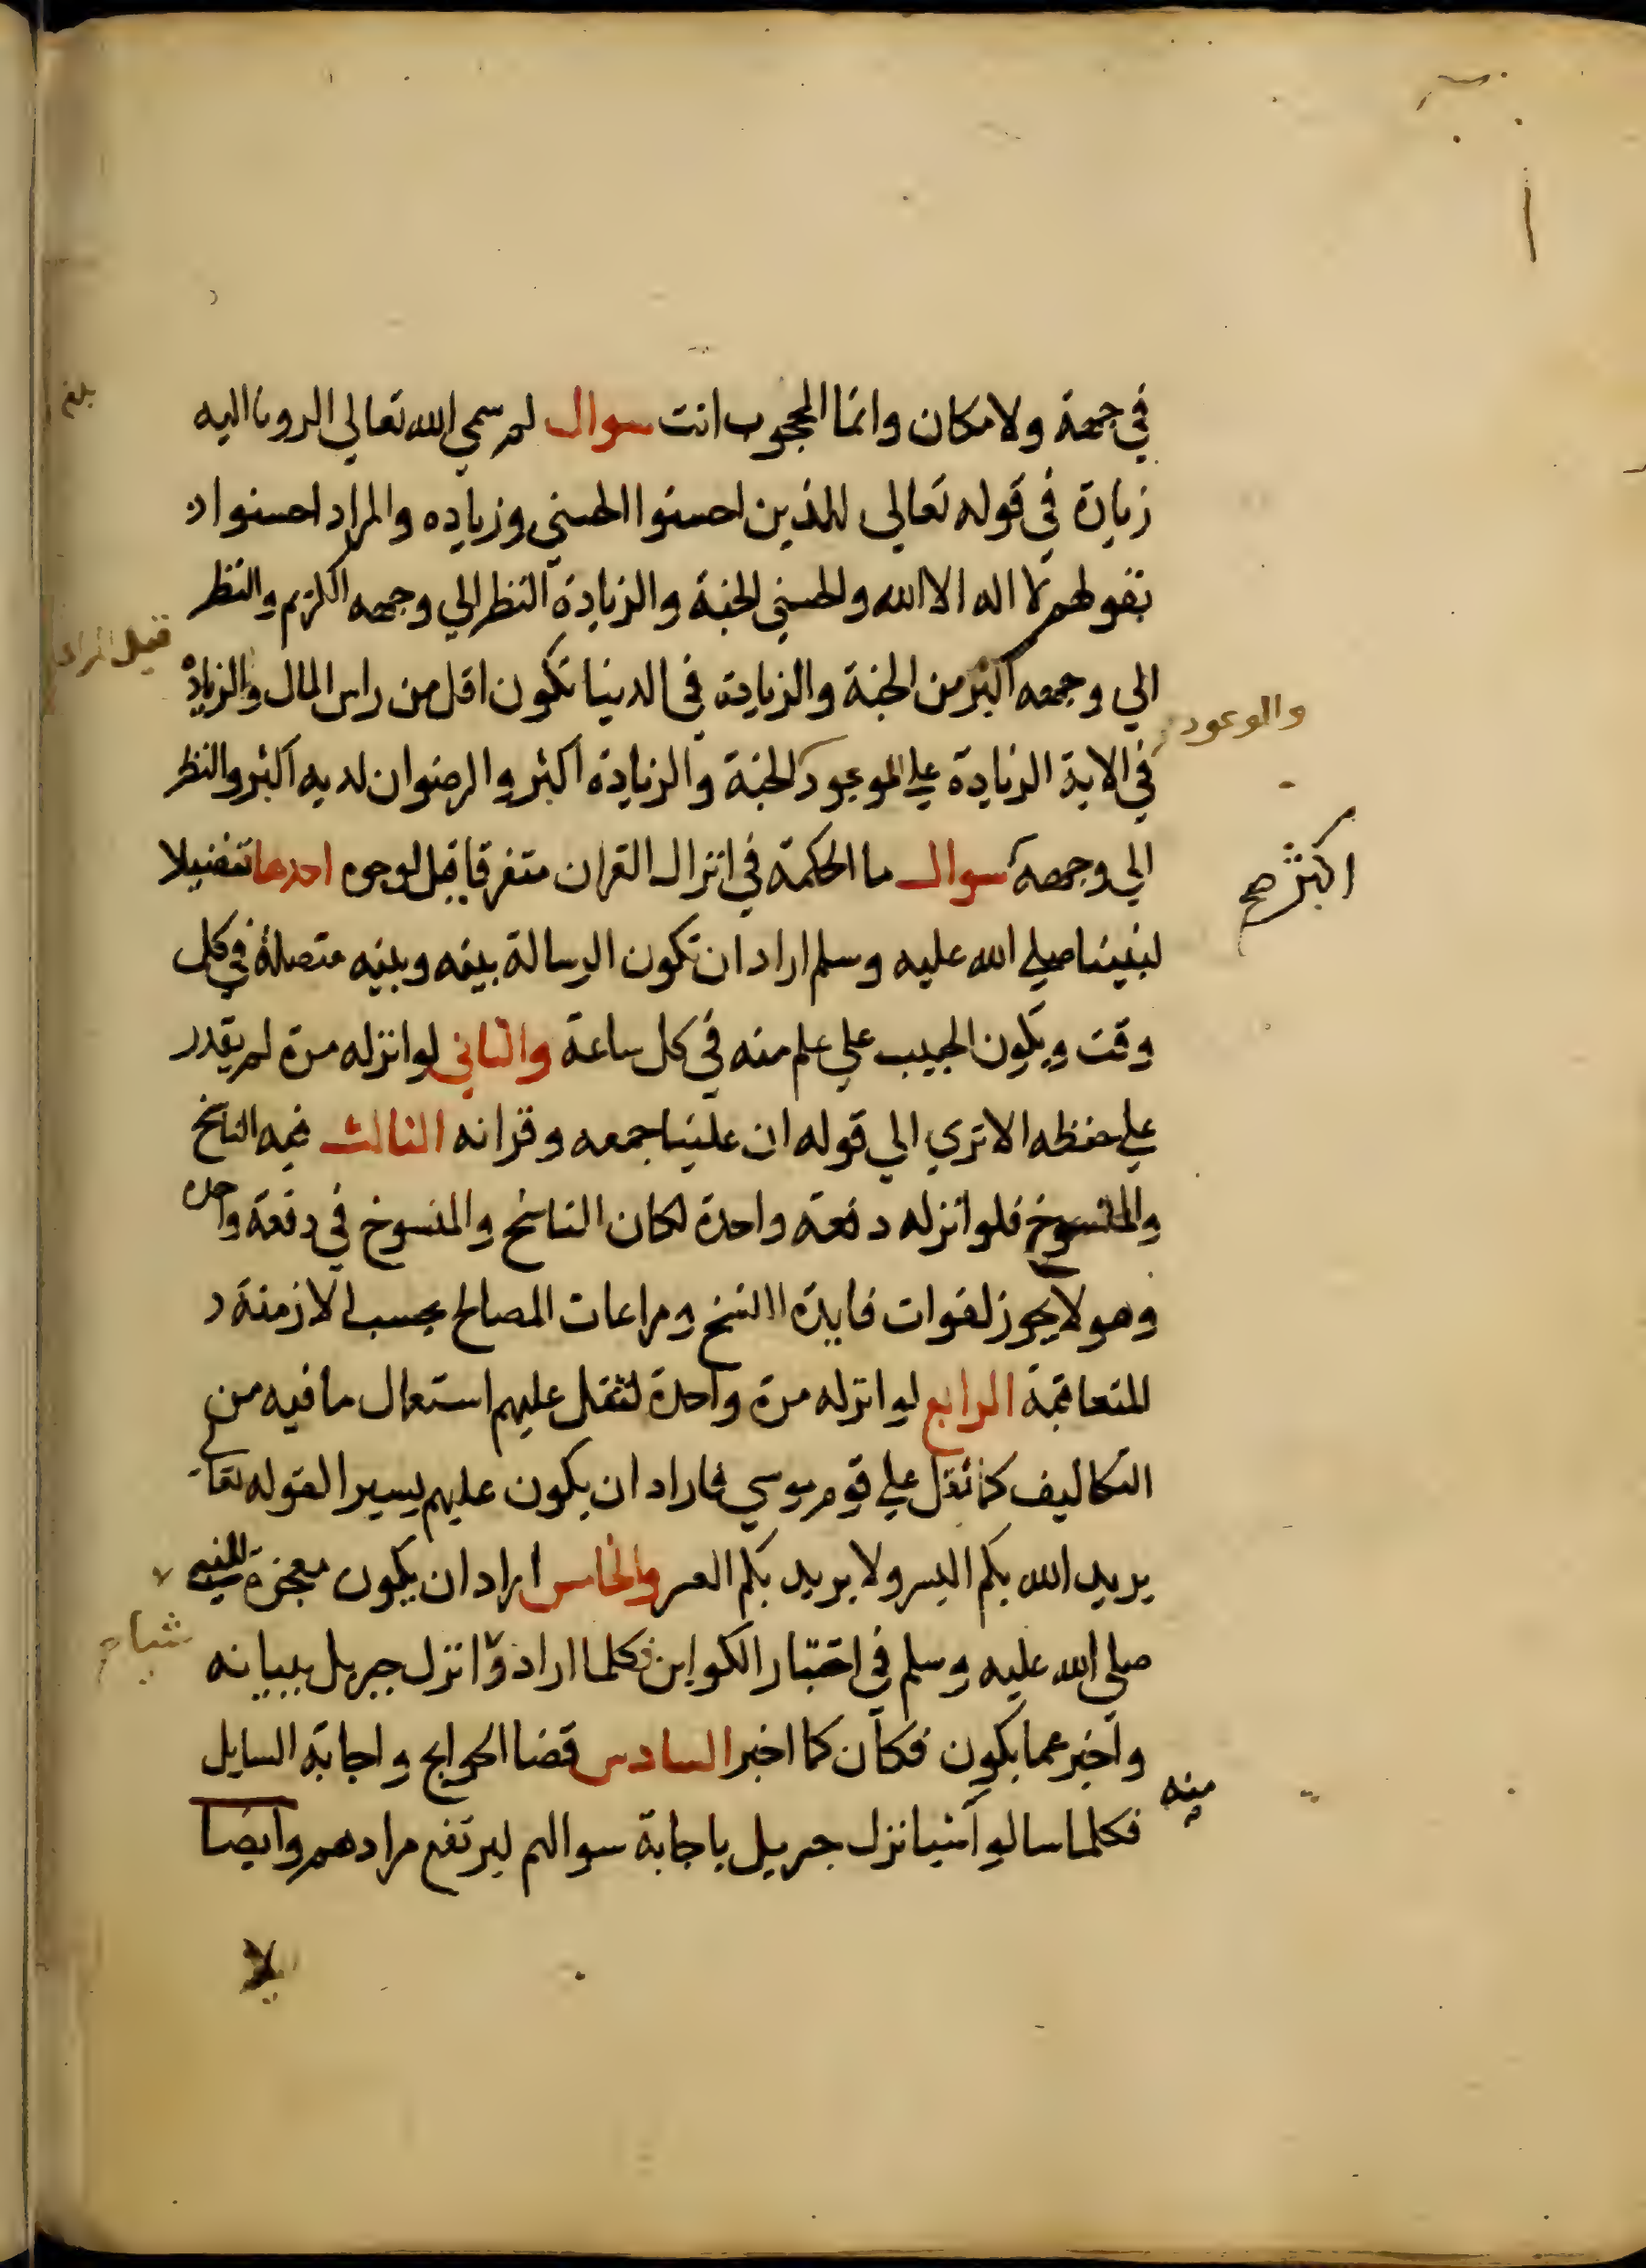 في جهة ولا مكان وانما المحجوب انت سوال لم سمي الله تعالي الرويا اليه
زيادة في قوله تعالي للذين احسنوا الحسني وزياده والمراد احسنوا
بقولهم لا اله الا الله والحسني الجنة والزيادة النظر الي وجهه الكريم والنظر
الي وجهه اكبر من الجنة والزيادة في الدينا تكون اقل من راس المال والزيادة
في الاية الزيادة علي الموعود كالجنة والزيادة اكثر والرضوان لديه اكبر والنظر
الي وجهه سوال ما الحكمة في انزال القران متفرقا قيل لوجوه احدها تفضيلا
لنبينا صلي الله عليه وسلم اراد ان تكون الرسالة بينه وبينه متصلة في كل
وقت ويكون الحبيب علي علم منه في كل ساعة والثاني لو انزله مرة لم يقدر
علي حفظه الا تري الي قوله ان علينا جمعه وقرانه الثالث فيه الناسخ
والمنسوخ فلو انزله دفعة واحدة لكان الناسخ والمنسوخ في دفعة واحدة
وهو لا يجوز لفوات فايدة النسخ ومراعات المصالح بحسب الازمنة
المتعاقبة الرابع لو انزله مرة واحدة لثقل عليهم استعمال ما فيه من
التكاليف كما ثقل علي قوم موسي فاراد ان يكون عليهم يسيرا لقوله تعا
يريد الله بكم اليسر ولا يريد بكم العسر والخامس اراد ان يكون معجزة للنبي
صلي الله عليه وسلم في اختبار الكواين فكلما ارادوا نزل جبريل ببيانه
شيا
واخبر عما يكون فكان كما اخبر السادس قضا الحوايج واجابة السايل
منه
فكلما سالوا شيا نزل جبريل باجابة سوالهم ليرتفع مرادهم وايضا
والموعود
اكبر صح
بلغ
قيل
لا